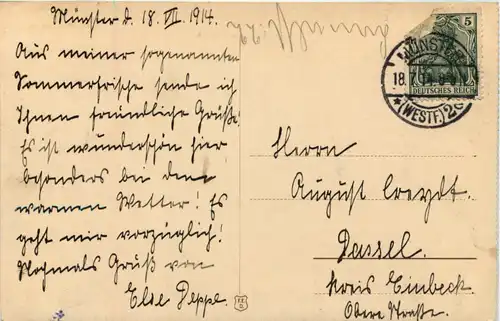 Münster d. 18. VII. 1914.
Aus meiner sogenannten
Sommerfrische sende ich
Ihnen freundliche Grüße!
Es ist wunderschön hier
besonders bei dem
warmen Wetter! Es
geht mir vorzüglich!
Nochmals Gruß von
Else Deppe.
5
MÜNSTER
18.7.14. 8-9
DEUTSCHES REICH
*(WESTF.) 2
Herrn
August
Dassel.
Kreis Einbeck.
Obere Straße.